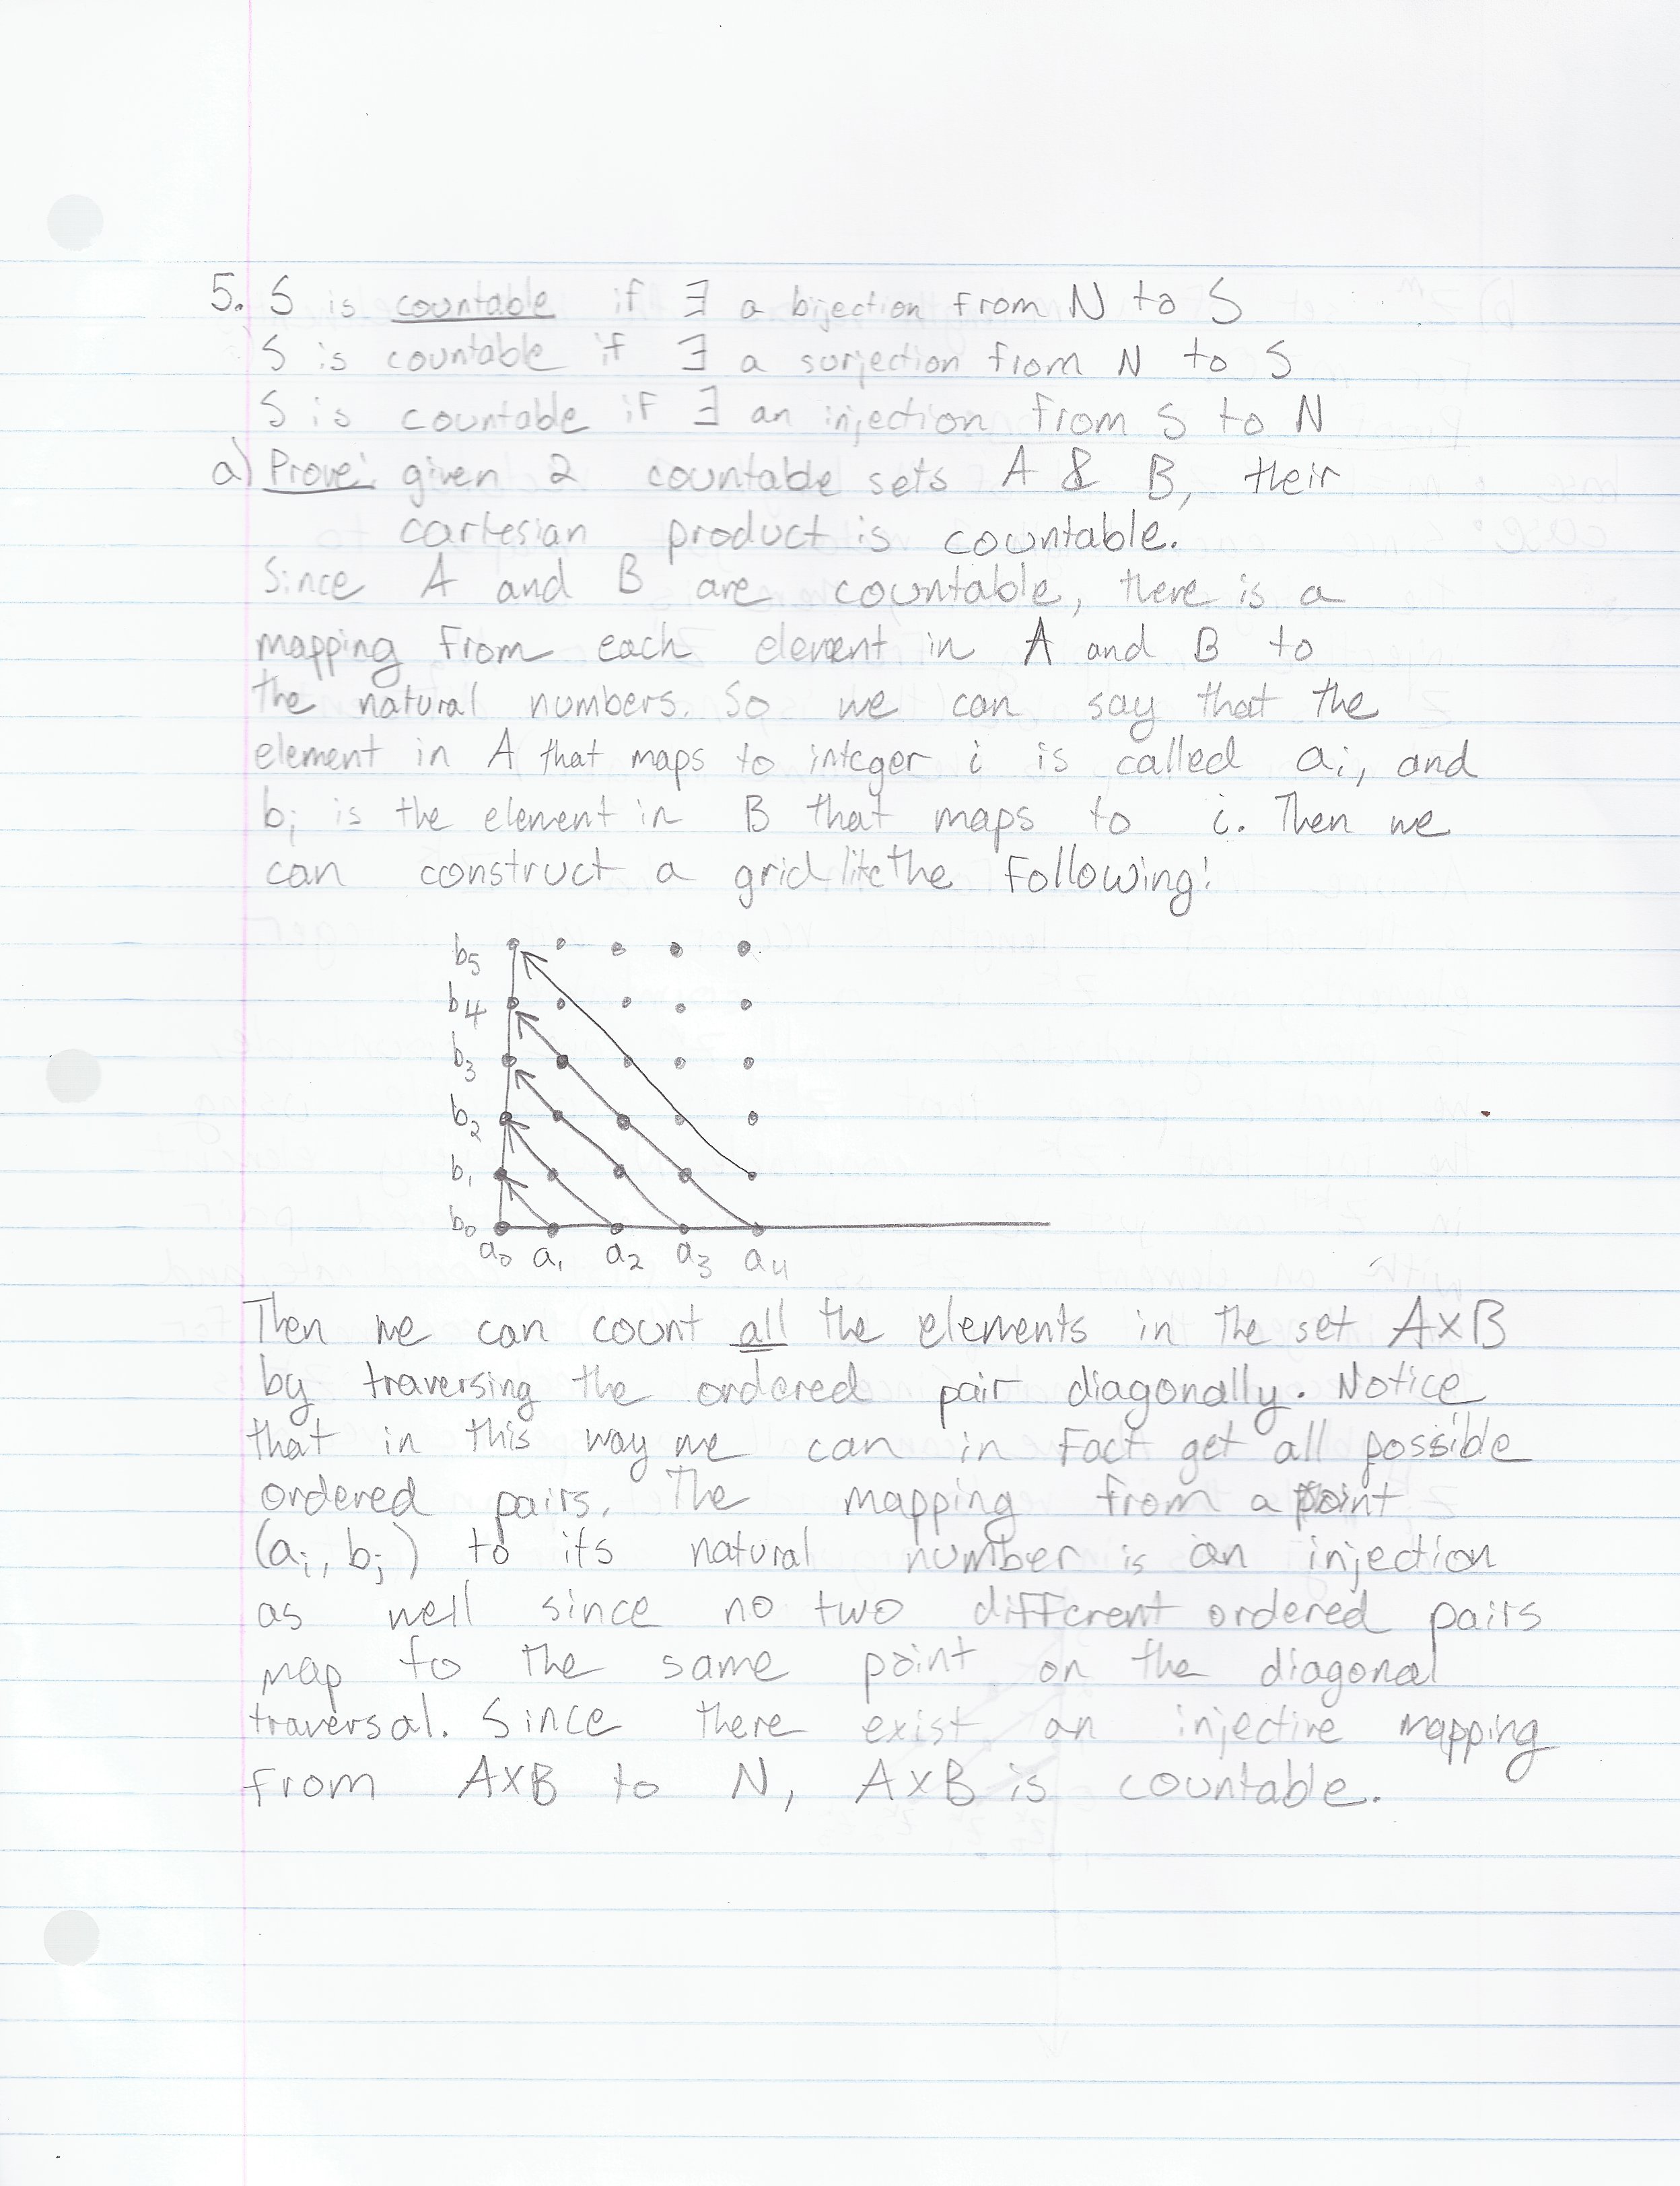 5. S is countable if ∃ a bijection from N to S
S is countable if ∃ a surjection from N to S
S is countable if ∃ an injection from S to N
a) Prove: given 2 countable sets A & B, their
cartesian product is countable.
Since A and B are countable, there is a
mapping from each element in A and B to
the natural numbers. So we can say that the
element in A that maps to integer i is called ai, and
bi is the element in B that maps to i. Then we
can construct a grid like the following:
b5
b4
b3
b2
b1
b0
a0 a1 a2 a3 a4
Then we can count all the elements in the set AxB
by traversing the ordered pair diagonally. Notice
that in this way we can in fact get all possible
ordered pairs. The mapping from a point
(ai, bj) to its natural number is an injection
as well since no two different ordered pairs
map to the same point on the diagonal
traversal. Since there exist an injective mapping
from AxB to N, AxB is countable.